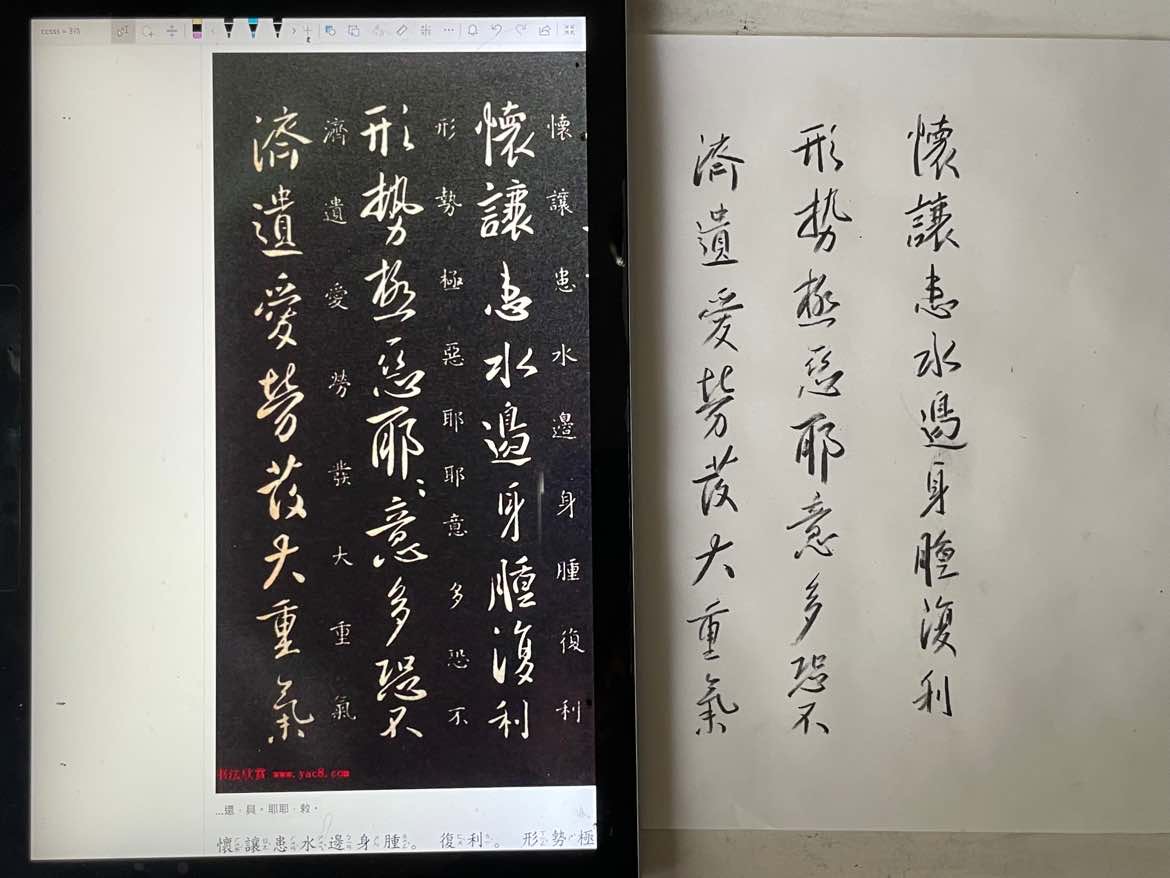 懷讓患水邊身腫復利
懷讓患水邊身腫復利
形勢極惡耶耶意多恐不
形势極惡耶〻意多恐不
濟遺愛勞發大重氣
濟遺愛勞發大重氣
书法欣赏 www.yac8.com
...還·具。耶耶·救。
懷讓患水邊身腫。復利。形勢極
懷讓患水邊身腫復利
形势極惡耶意多恐不
濟遺愛勞發大重氣